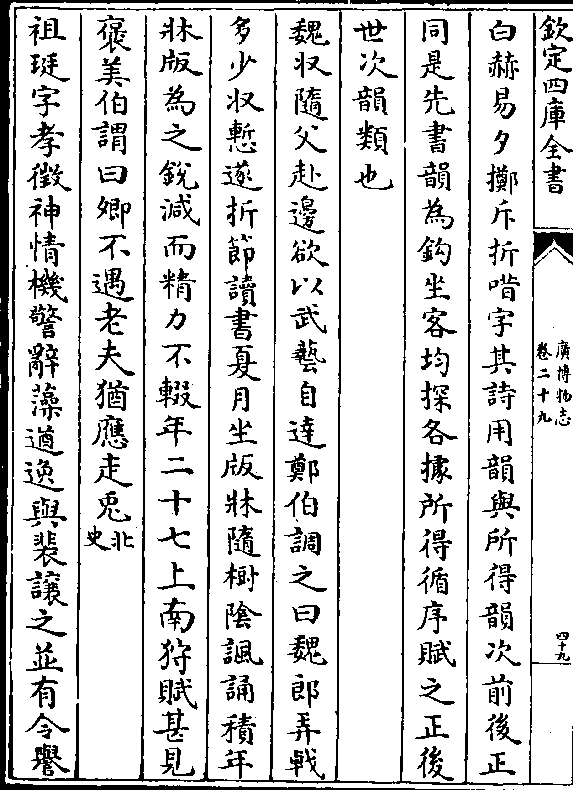 欽定四庫全書
廣博物志
卷二十九
四十九
白赫易夕擲斥折唶字其詩用韻與所得韻次前後正
同是先書韻為鈎坐客均探各據所得循序賦之正後
世次韻類也
魏収隨父赴邊欲以武藝自達鄭伯調之曰魏郎弄㦸
多少収慙遂折節讀書夏月坐版牀隨樹陰諷誦積年
牀版為之銳減而精力不輟年二十七上南狩賦甚見
褒美伯謂曰卿不遇老夫猶應走兎北史
祖珽字孝徵神情機警辭藻遒逸與裴讓之並有令譽